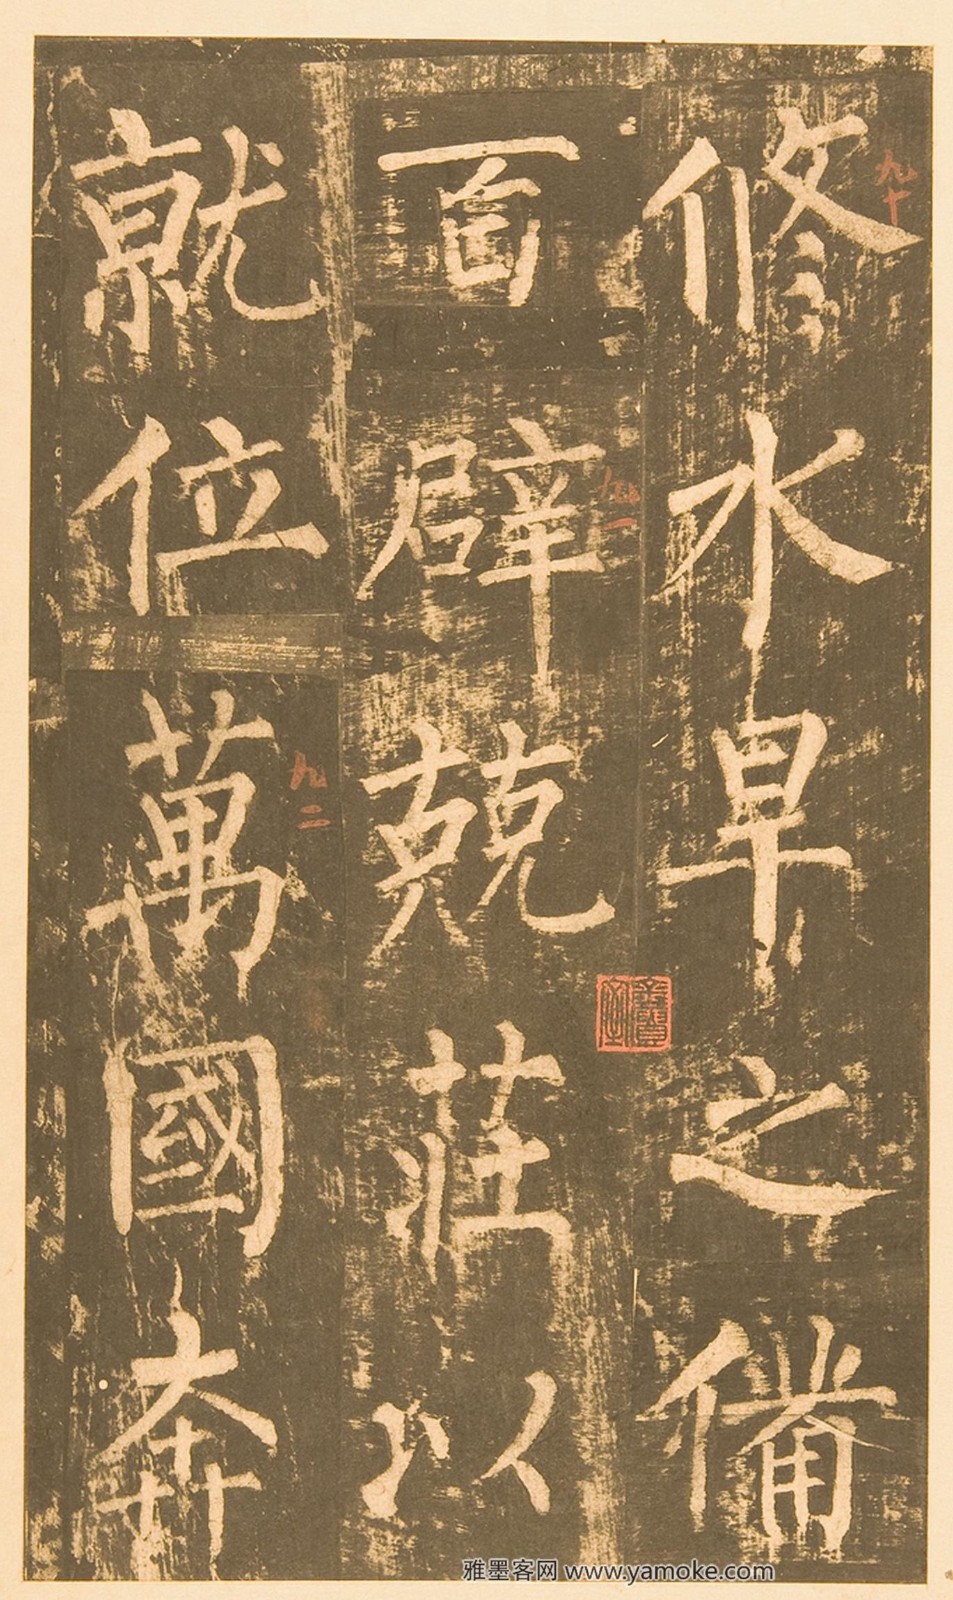 修水旱之備
百辟兢莊以
就位萬國奔
九十
九一
九二
雅墨客网 www.yamoke.com